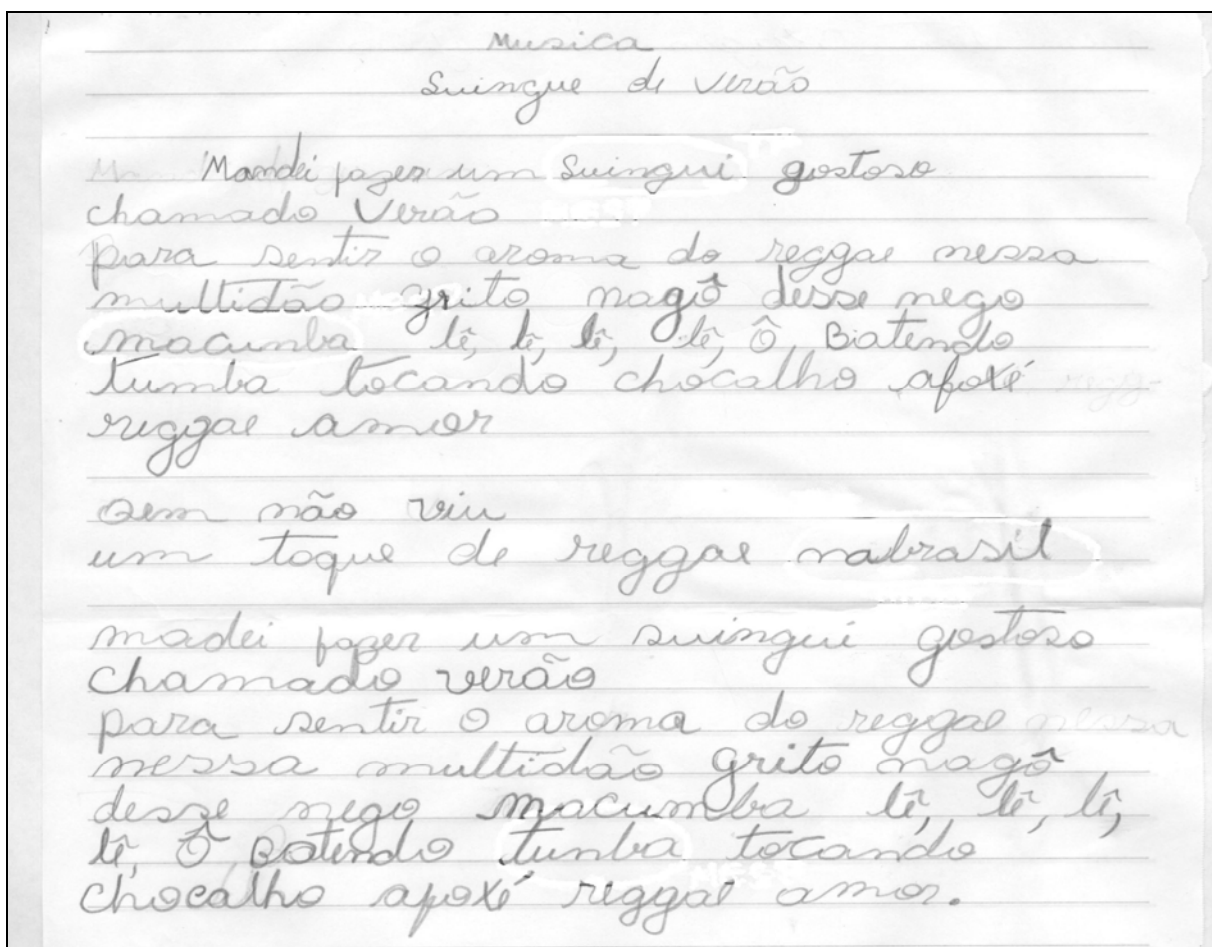 Musica
Suingue de Verão
Mandei fazer um Suingui gostoso
chamado Verão
para sentir o aroma do reggae nessa
multidão grito nagô desse nego
macumba lê, lê, lê, lê, Ô, Biatendo
tumba tocando chócalho afoxé
reggae amor
Qem não viu
um toque de reggae nabrasil
madei fazer um suingui gostoso
chamado verão
para sentir o aroma do reggae nessa
nessa multidão grito nagô
desse nego macumba lê, lê, lê,
lê, Ô, Batendo tunba tocando
chocalho afoxé reggae amor.